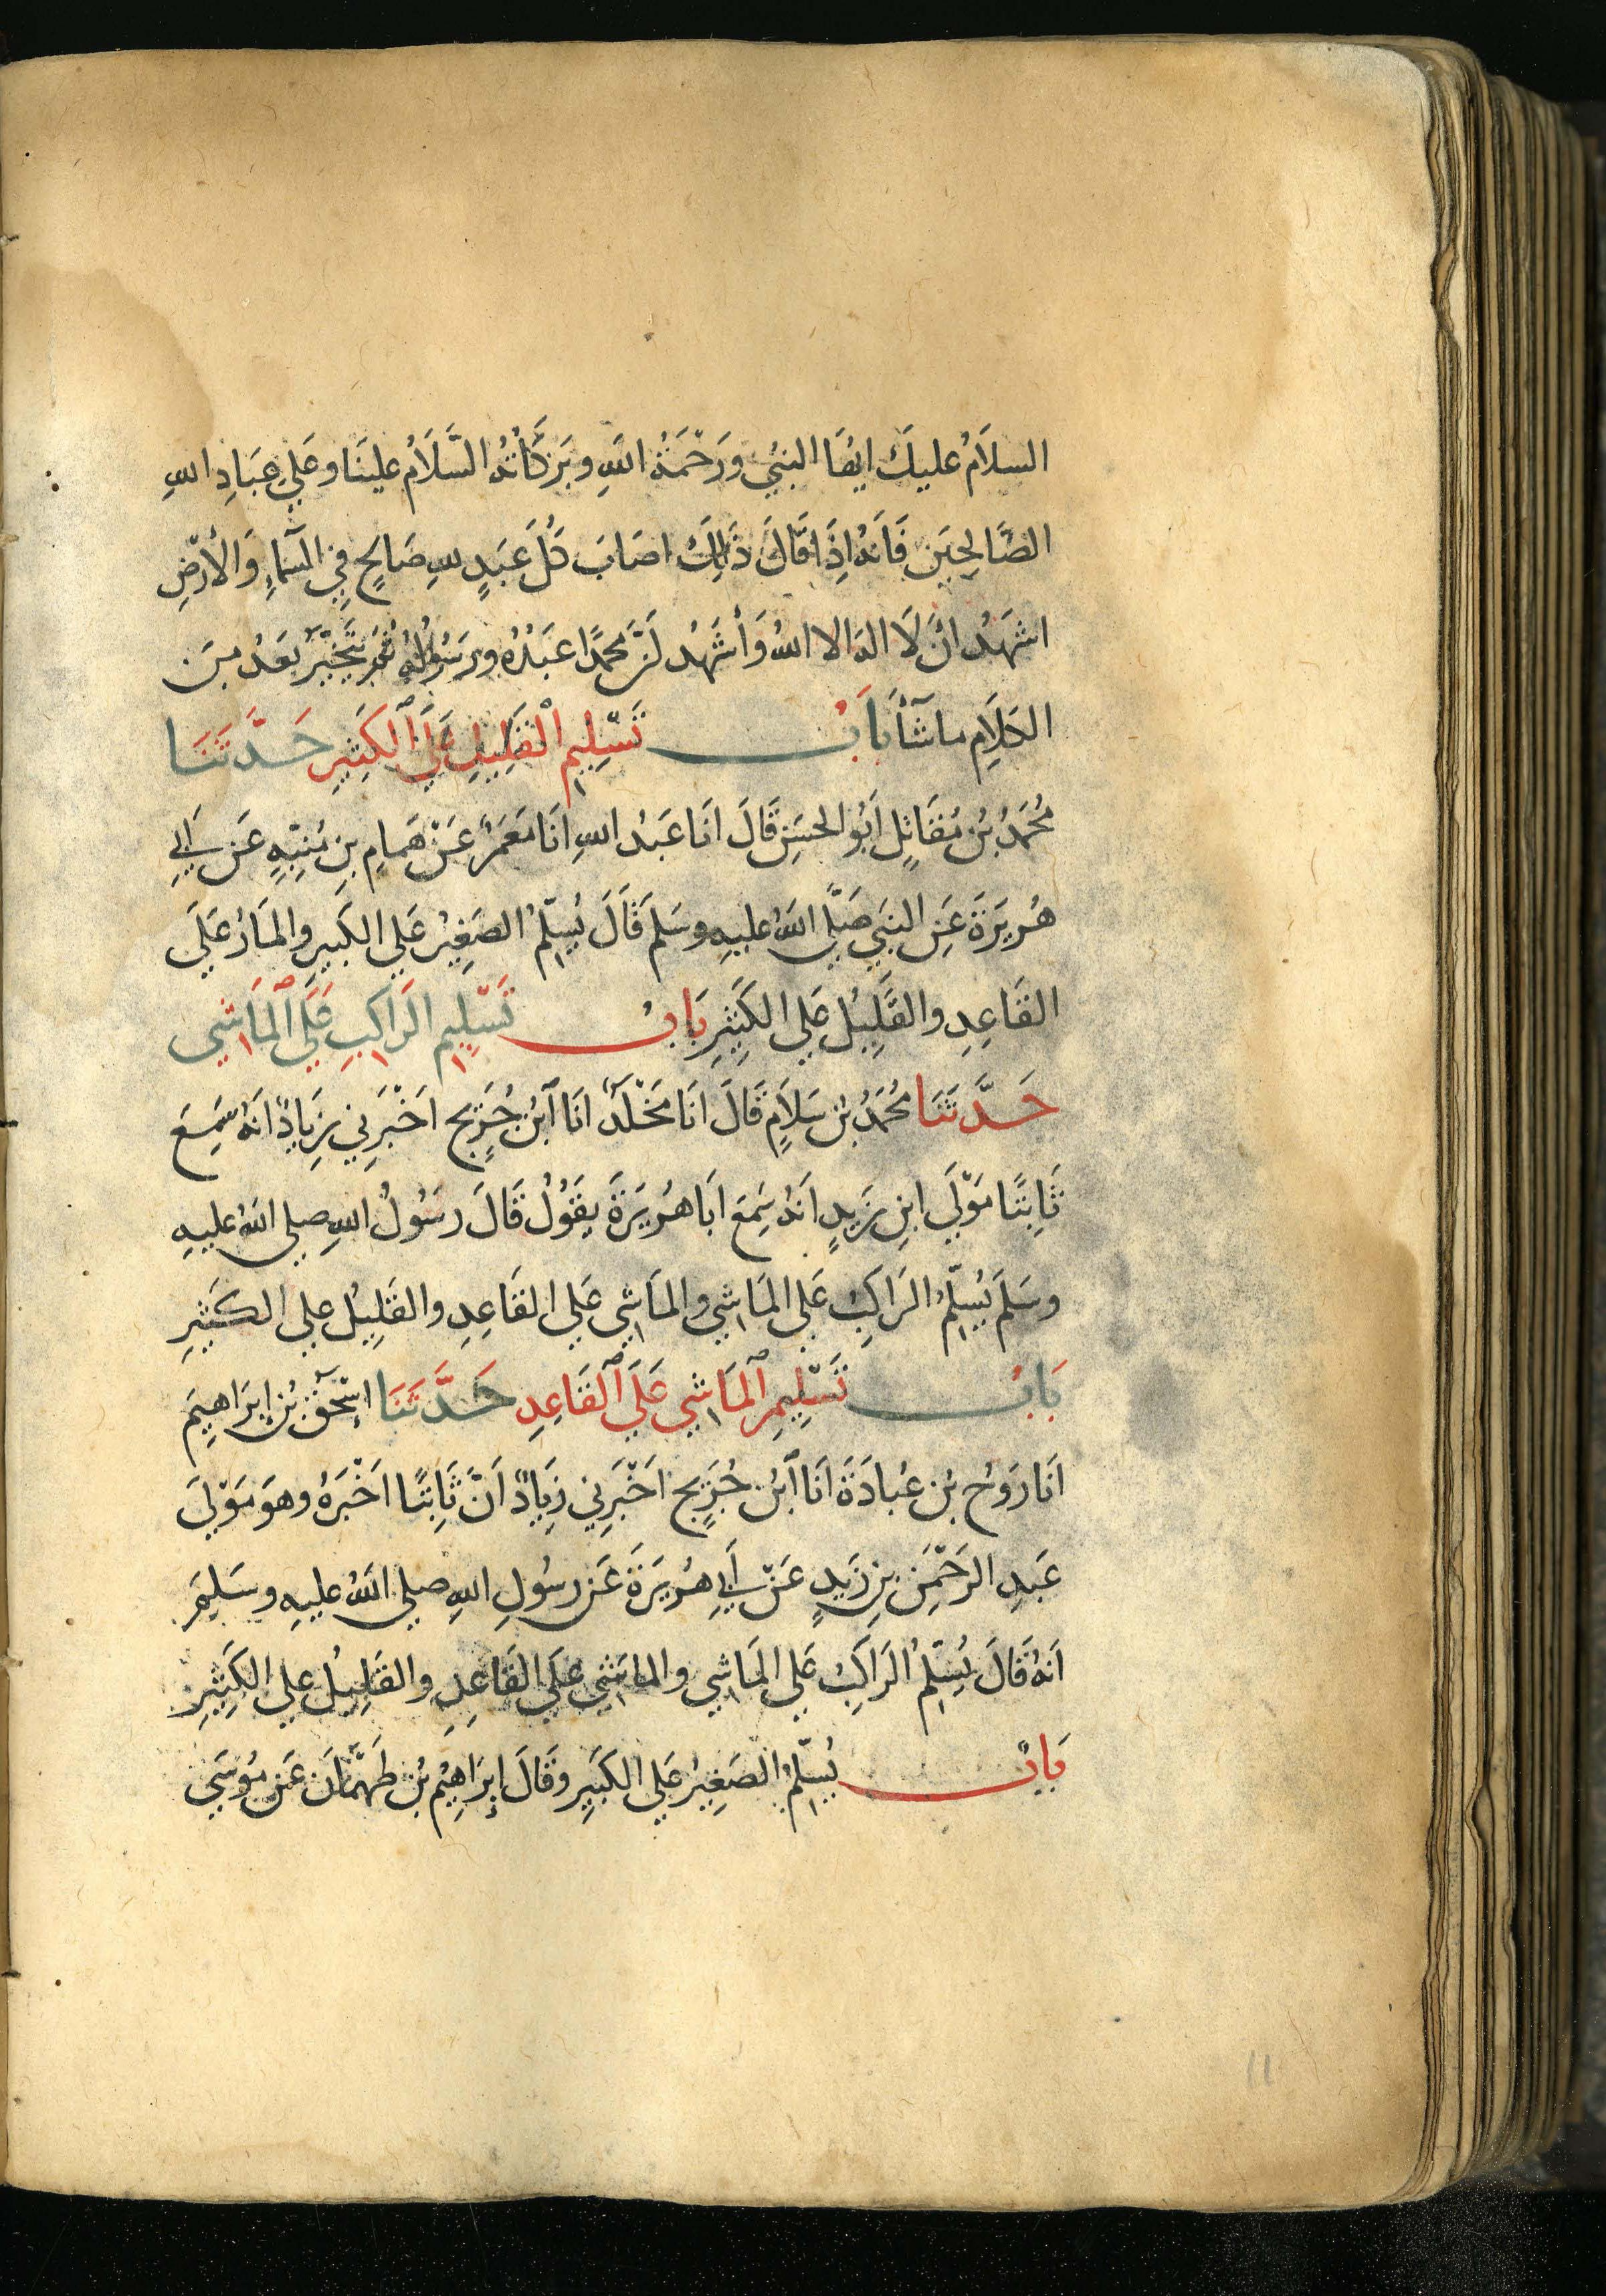 السلَامُ عليكَ ايُّهَا النبيُ وَرَحْمَةُ اللهِ وبَرَكَاتُهُ السَّلَامُ علينَا وعَلي عِبَادِ اللهِ
الصَّالِحِيَن فَانهُ اِذَا قَالَ ذَلِكَ اصَابَ كُلَ عَبَدٍ للهِ صَالِحٍ فِي السَّمَآءِ وَالأَرْضِ
اشهَدُ انْ لَا اله الا اللهُ وَأشَهَدُ اَنَّ محمدًا عَبَدُهُ ورَسُولُهُ ثُمَ يَتَخَيَّرُ بَعَدُ مِنَ
الكَلَامِ ماشَآءَ بَابُ تَسْلِيمِ القَلِيلِ عَلَى الكَثِيرِ حَدَّثَنَا
مُحُمَدُ بْنُ مُقَاتِلٍ اَبُو الحسَنِ قَالَ انَا عَبْدُ اللهِ انَا مَعَمَرٌ عَنْ هَمامِ بنِ مُنَبِّهٍ عَن اَبي
هُرَيرَةَ عَنِ النبَي صَلَّي اللهُ عليهِ وسَلمَ قَالَ يُسَلِّمُ الصَغِيرُ عَلي الكَبيرِ والمَارُ عَلَي
القَاعِدِ والقَلِيلُ عَلي الكَثِيرِ بَابُ تَسْلِيمِ الرَاكِبِ عَلَى المَاشِي
حَدَّثَنَا مُحُمَدُ بنُ سَلاَمٍ قَالَ انَا مَخْلَدٌ انَا ابْنُ جُرَيجٍ اخْبَرَنِي زِيَادٌ انهُ سَمِعَ
ثَابِتًا مَوْلَي ابنِ زَيدٍ اَنهُ سَمِعَ ابَا هُرَيرَةَ يقَوُلُ قَالَ رسُولُ اللهِ صلي اللهُ عليهِ
وسَلمَ يُسَلِّمُ الرَاكِبُ عَلي المَاشِي والمَاشِي عَلي القَاعِدِ والقَلِيلُ علي الكَثيرِ
بَابُ تَسْلِيمِ المَاشِي عَلَى القَاعِدِ حَدَّثَنَا إسْحَقُ بْنُ إبرَاهِيمَ
اَنَا رَوحُ بْن عُبادَةَ اَنَا ابْنُ جُرَيجٍ اخْبَرَنِي زِيَادٌ اَنَّ ثَابِتًا اخْبَرَهُ وهوَ مَوْلَي
عَبدِ الرَحْمَنِ بنِ زَيدٍ عَنْ اَبي هُرَيرَةَ عَن رسُولِ اللهِ صلي اللهُ عليهِ وسَلمَ
اَنهُ قَالَ يُسَلِّمُ الرَاكِبُ عَلي المَاشِي والمَاشِي عَلَي القَاعِدِ والقَلِيلُ علي الكَثِيرِ
بَابٌ يُسَلِّمُ الصَغِيرُ عَلي الكَبيرِ وقَالَ إبرَاهِيمُ بْنُ طَهْمَانَ عَن مُوسَي
11